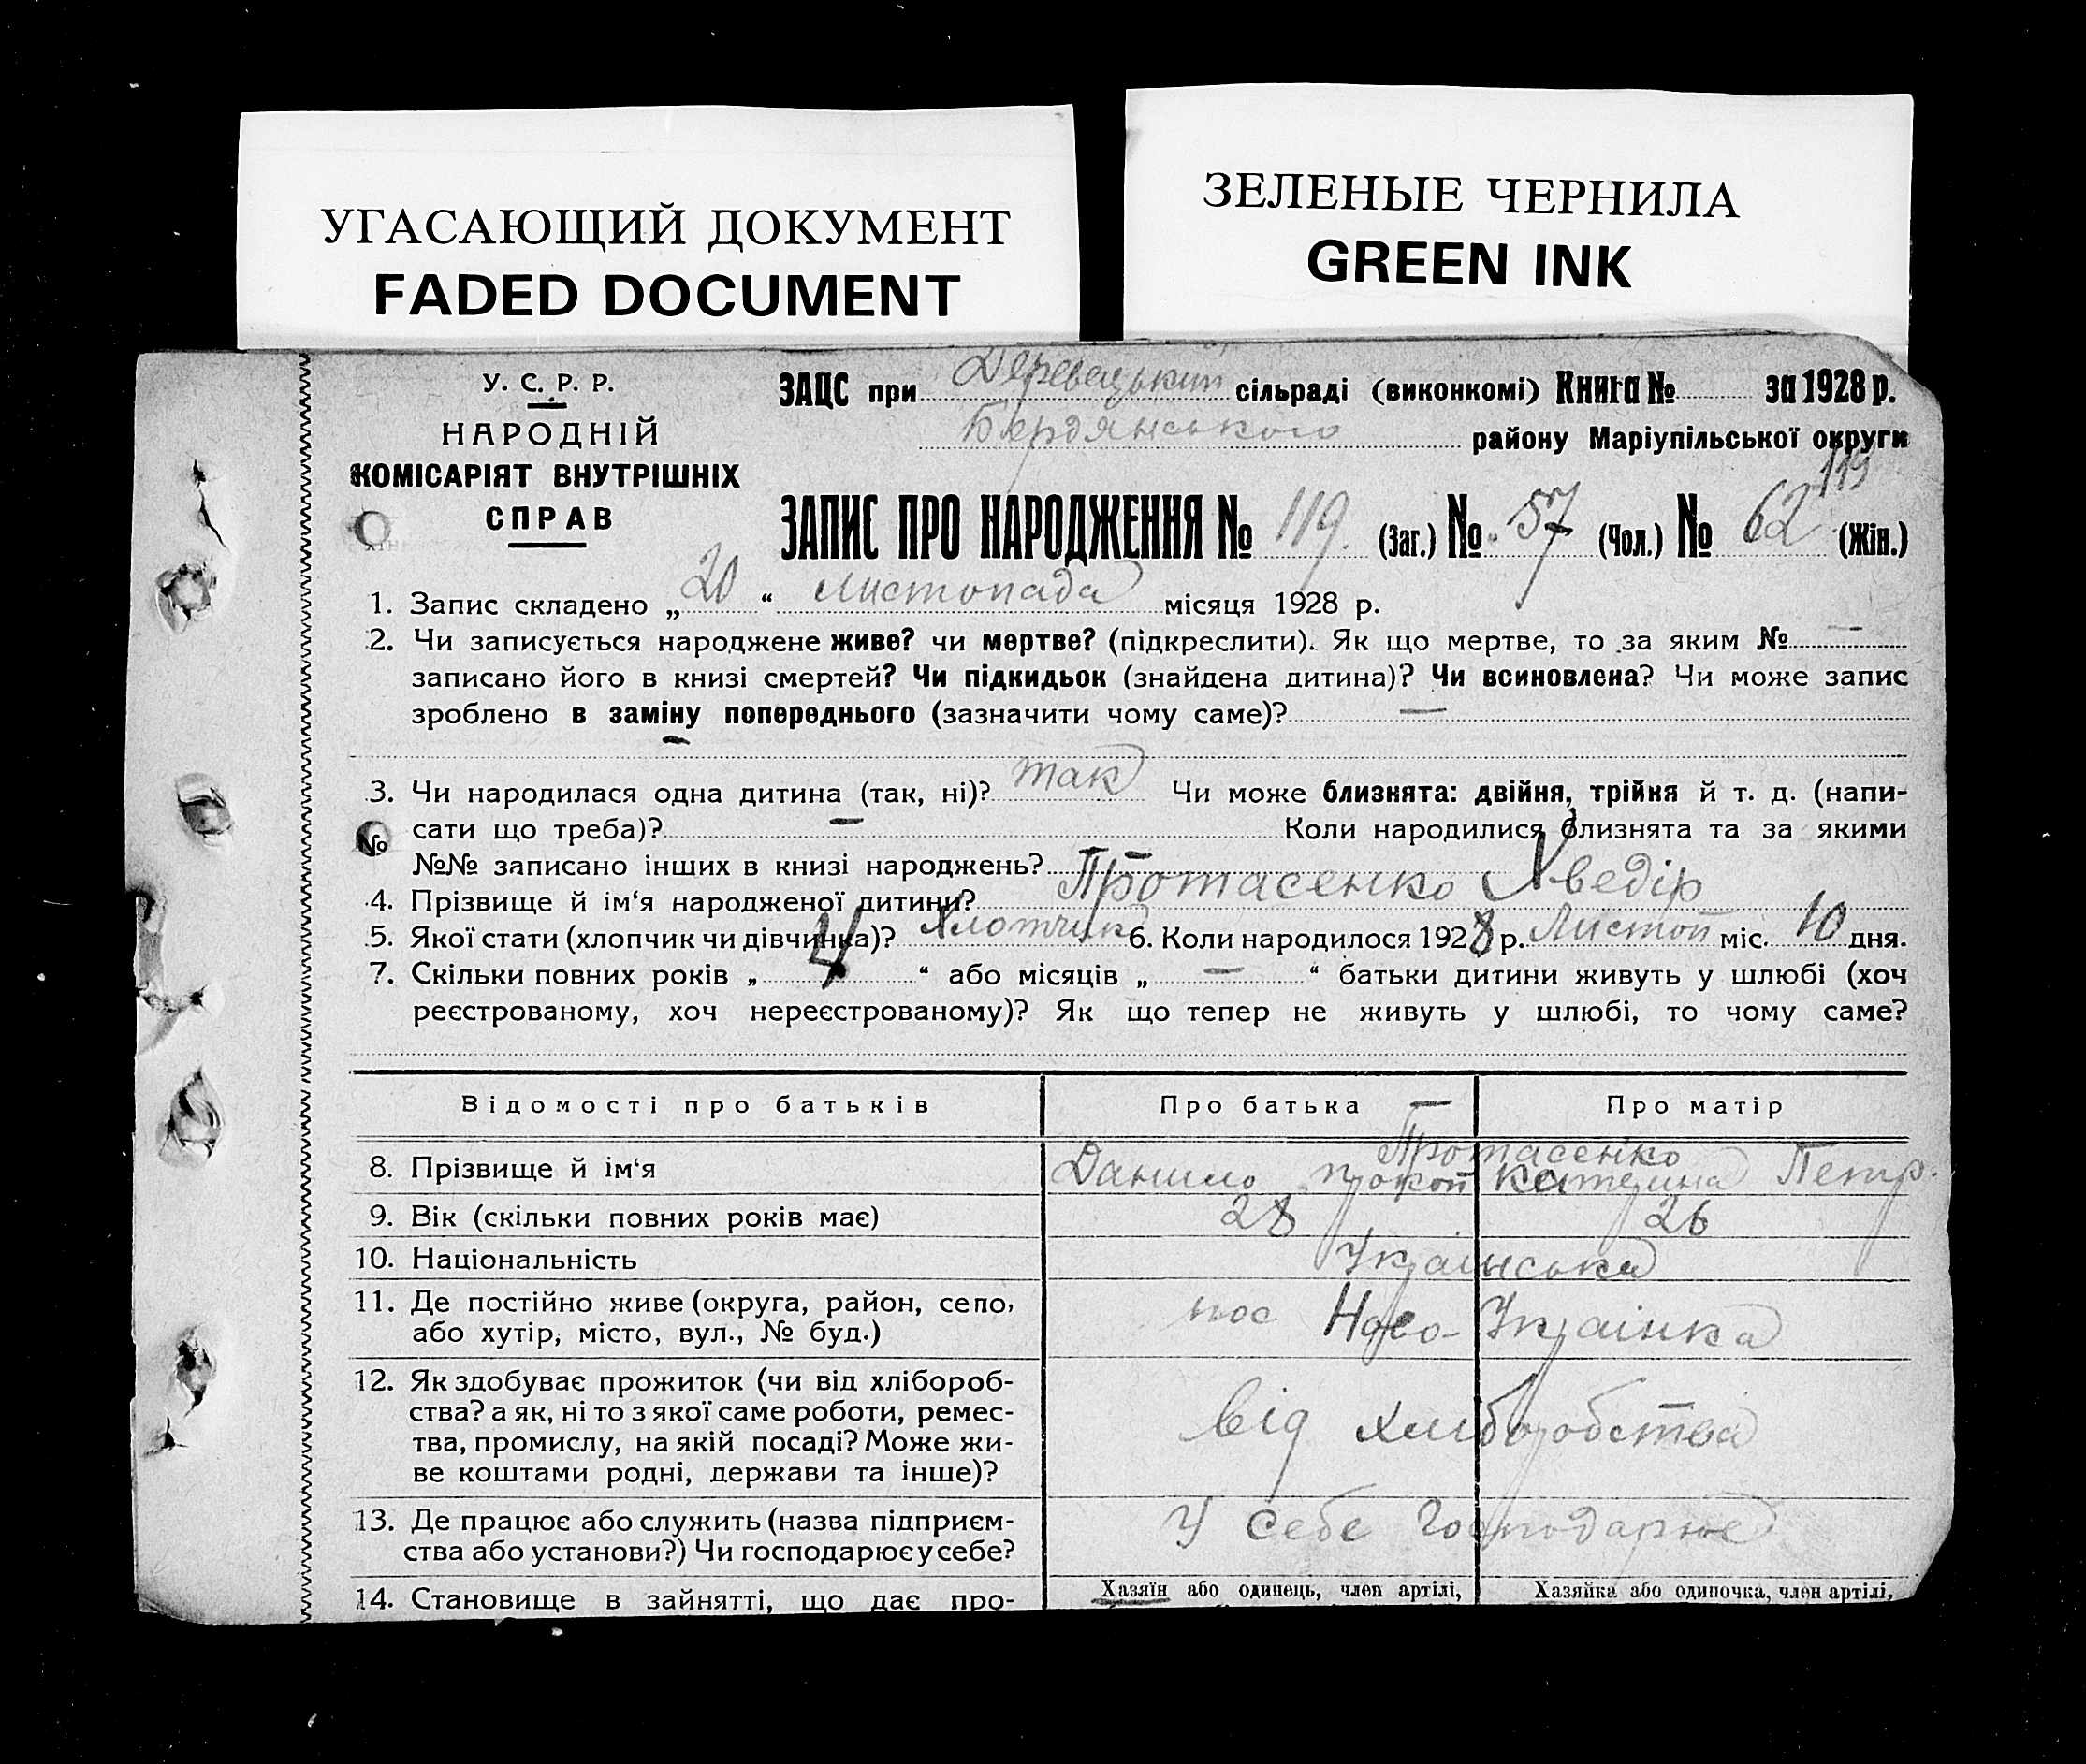 УГАСАЮЩИЙ ДОКУМЕНТ
FADED DOCUMENT
ЗЕЛЕНЫЕ ЧЕРНИЛА
GREEN INK
У. С. Р. Р.
НАРОДНІЙ
КОМІСАРІЯТ ВНУТРІШНІХ
СПРАВ
ЗАЦС при Деревецький сільраді (виконкомі) Книга № за 1928 р.
Бердянського району Маріупільської округи
119
ЗАПИС ПРО НАРОДЖЕННЯ № 119. (Заг.) № 57 (Чол.) № 62 (Жін.)
1. Запис складено „ 20 “ листопада місяця 1928 р.
2. Чи записується народжене живе? чи мертве? (підкреслити). Як що мертве, то за яким № —
записано його в книзі смертей? Чи підкидьок (знайдена дитина)? Чи всиновлена? Чи може запис
зроблено в заміну попереднього (зазначити чому саме)? —
3. Чи народилася одна дитина (так, ні)? так Чи може близнята: двійня, трійня й т. д. (напи-
сати що треба)? — Коли народилися близнята та за якими
№№ записано інших в книзі народжень? —
4. Прізвище й ім‘я народженої дитини? Протасенко Хведір
5. Якої стати (хлопчик чи дівчинка)? Хлопчик 6. Коли народилось 1928 р. Листоп міс. 10 дня.
7. Скільки повних років „ 4 “ або місяців „ — “ батьки дитини живуть у шлюбі (хоч
реєстрованому, хоч нереєстрованому)? Як що тепер не живуть у шлюбі, то чому саме?
Відомості про батьків Про батька — Про матір
Протасенко
8. Прізвище й ім‘я Данило Прокоп Катерина Петр.
9. Вік (скільки повних років має) 28 26
10. Національність Українська
11. Де постійно живе (округа, район, село,
або хутір, місто, вул., № буд.) пос Ново-Українка
12. Як здобуває прожиток (чи від хлібороб-
ства? а як, ні то з якої саме роботи, ремес-
тва, промислу, на якій посаді? Може жи-
ве коштами родні, держави та інше)? Від хліборобства
13. Де працює або служить (назва підприєм-
ства або установи?) Чи господарює у себе? У себе Господарює
14. Становище в зайнятті, що дає про- Хазяїн або одинець, член артілі, Хазяйка або одиночка, член артілі,